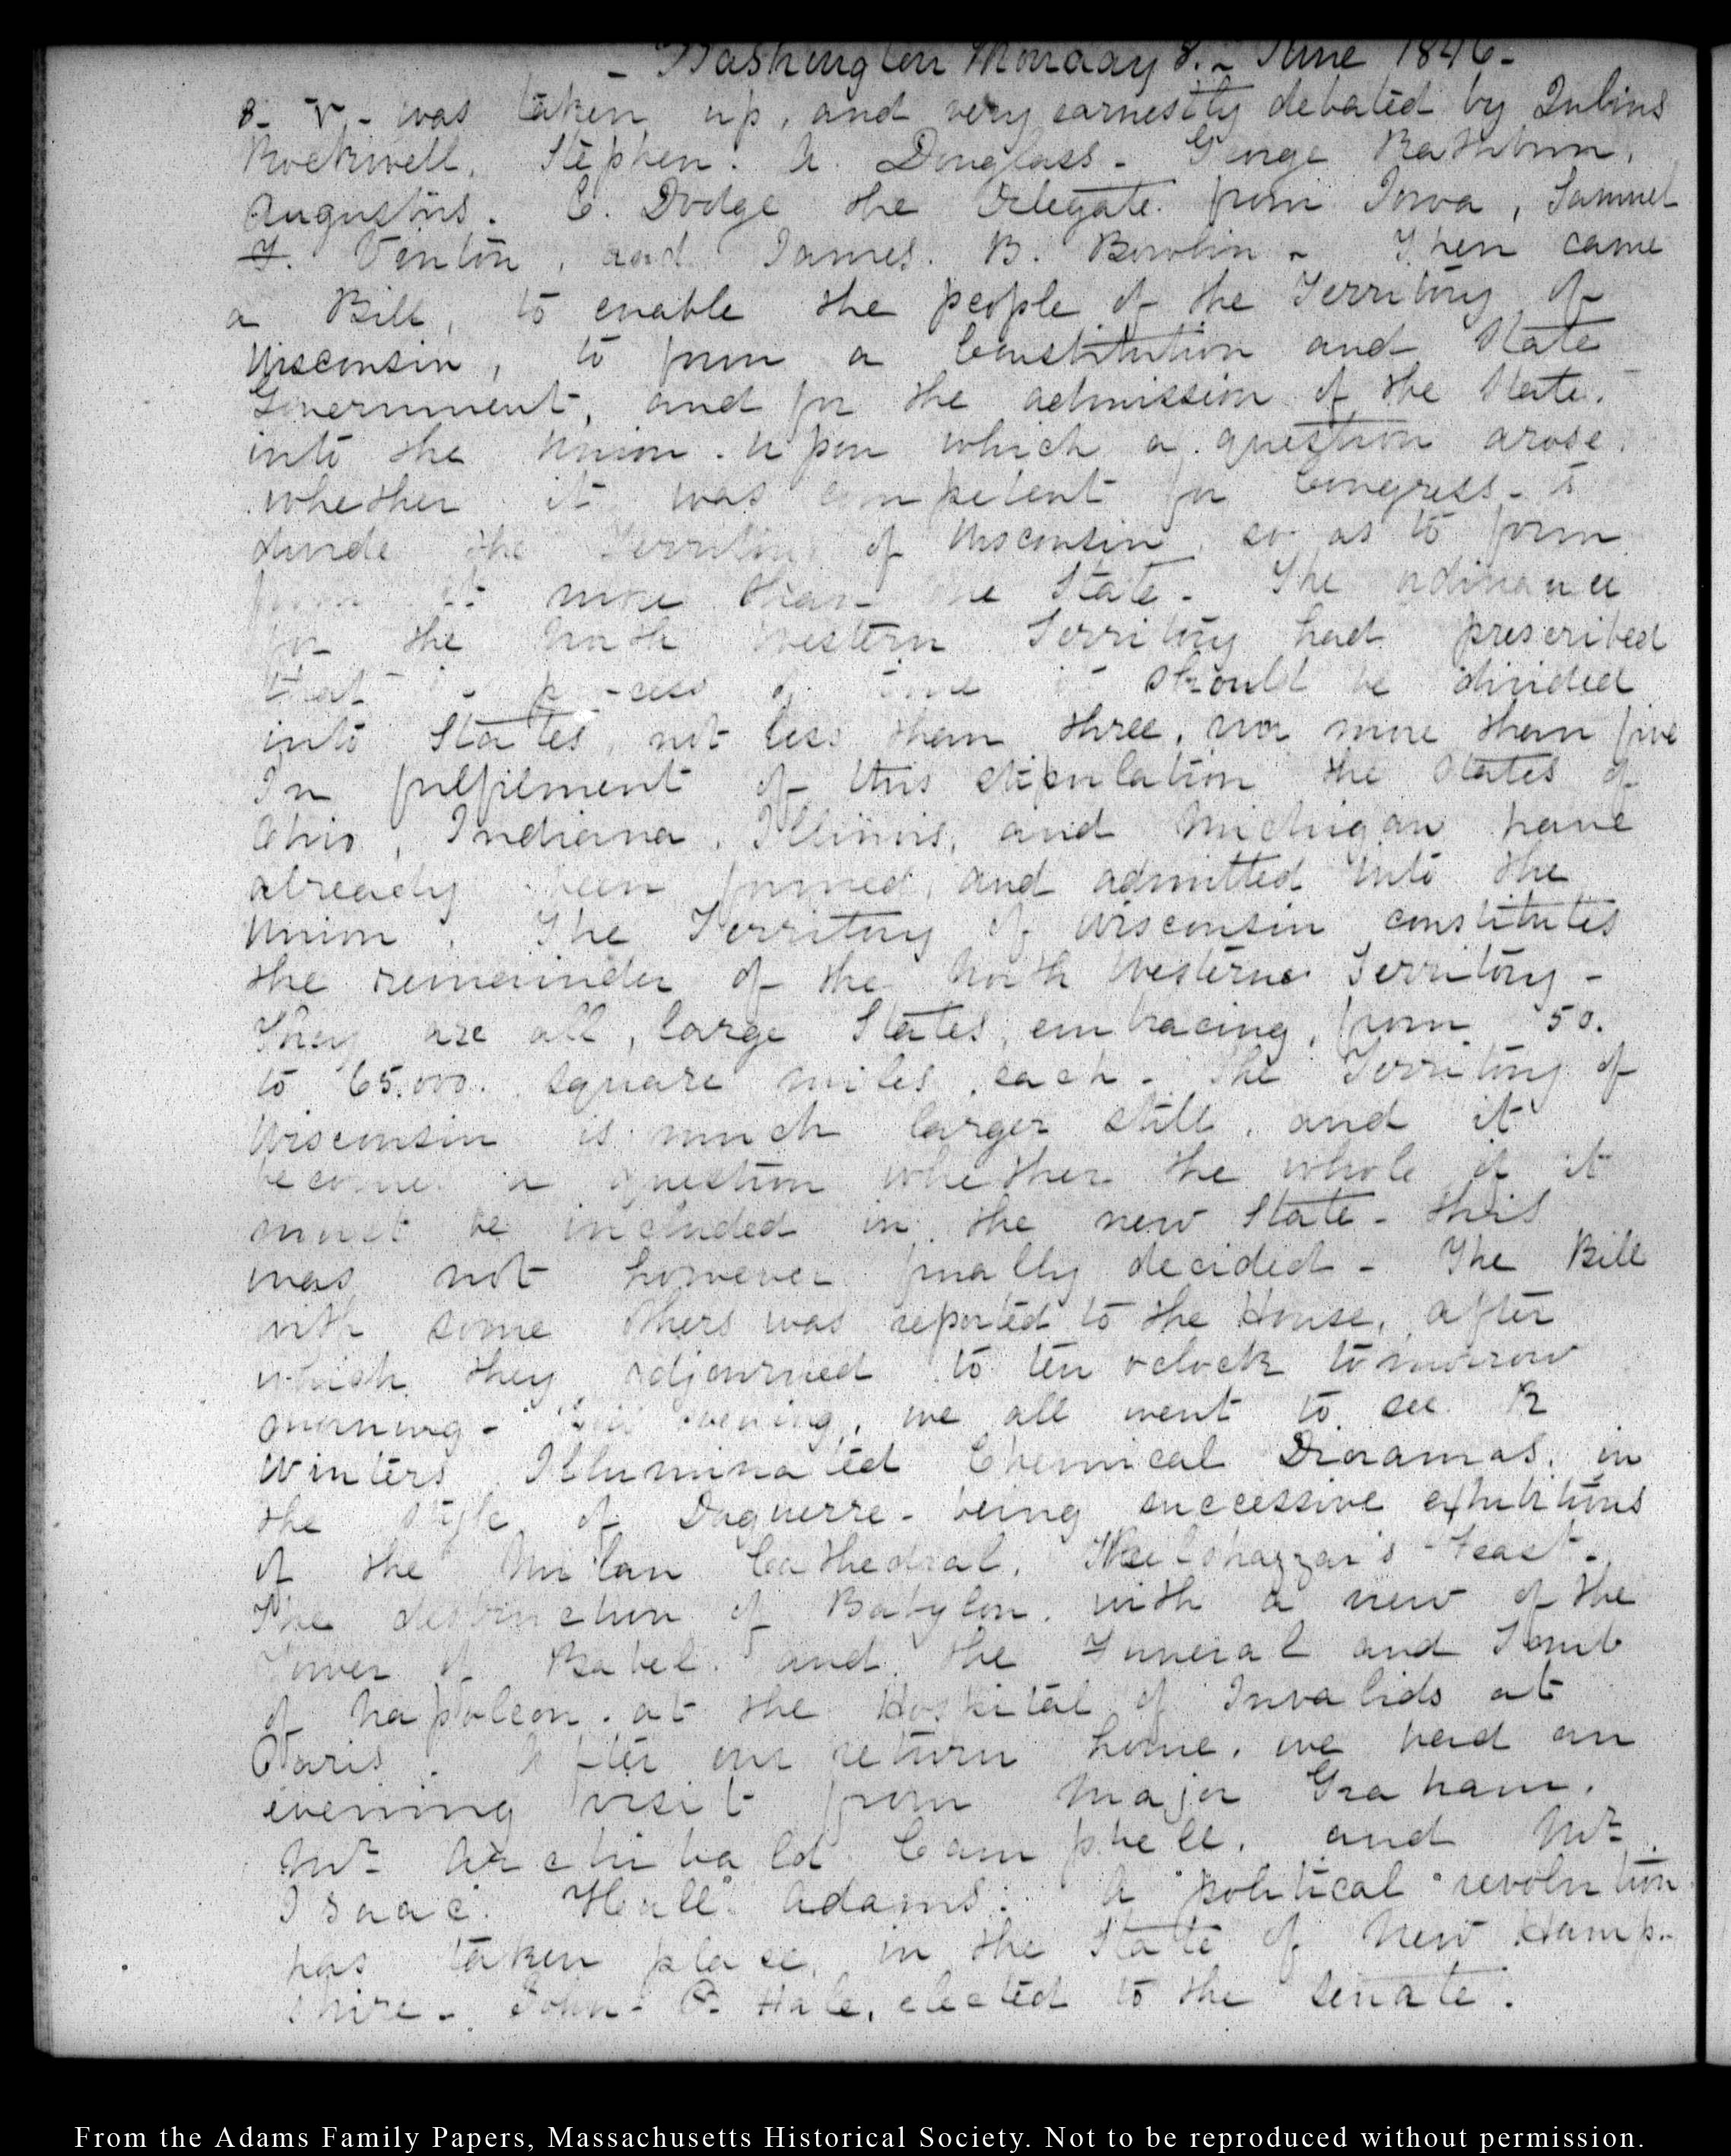 - Washington Monday 8. - June 1846 -
8 - V - was taken up, and very earnestly debated by Julius
Rockwell, Stephen. A. Douglass - George Rathbun,
Augustus. C. Dodge the Delegate from Iowa, Samuel
F. Vinton, and James. B. Bowlin - Then came
a Bill, to enable the people of the Territory of
Wisconsin, to form a Constitution and State
Government, and for the admission of the State.
into the Union. Upon which a question arose.
whether it was competent for Congress - to
divide the Territory of Wisconsin, so as to form
from it more than one State - The ordinance
for the North Western Territory had prescribed
that in process of time it should be divided
into States, not less than three, nor more than five
In fulfilment of this stipulation the States of
Ohio, Indiana, Illinois, and Michigan have
already been formed, and admitted into the
Union. The Territory of Wisconsin constitutes
the remainder of the North Western Territory -
They are all, large States, embracing, from 50.
to 65.000. square miles each - The Territory of
Wisconsin is much larger still, and it
became a question whether the whole of it
must be included in the new State - this
was not however finally decided - The Bill
with some others was reported to the House, after
which they adjourned to ten o clock tomorrow
morning - This evening, we all went to see R
Winters Illuminated Chemical Dioramas, in
the style of Daguerre - being successive exhibitions
of the Milan Cathedral, Belshazzar's Feast -
The destruction of Babylon, with a view of the
Tower of Babel, and the Funeral and Tomb
of Napoleon. at the Hospital of Invalids at
Paris. After our return home, we had an
evening visit from Major Graham.
Mr. Archibald Campbell, and Mr.
Isaac Hull Adams. A political revolution
has taken place, in the State of New Hamp-
shire - John - P. Hale, elected to the Senate.
From the Adams Family Papers, Massachusetts Historical Society. Not to be reproduced without permission.